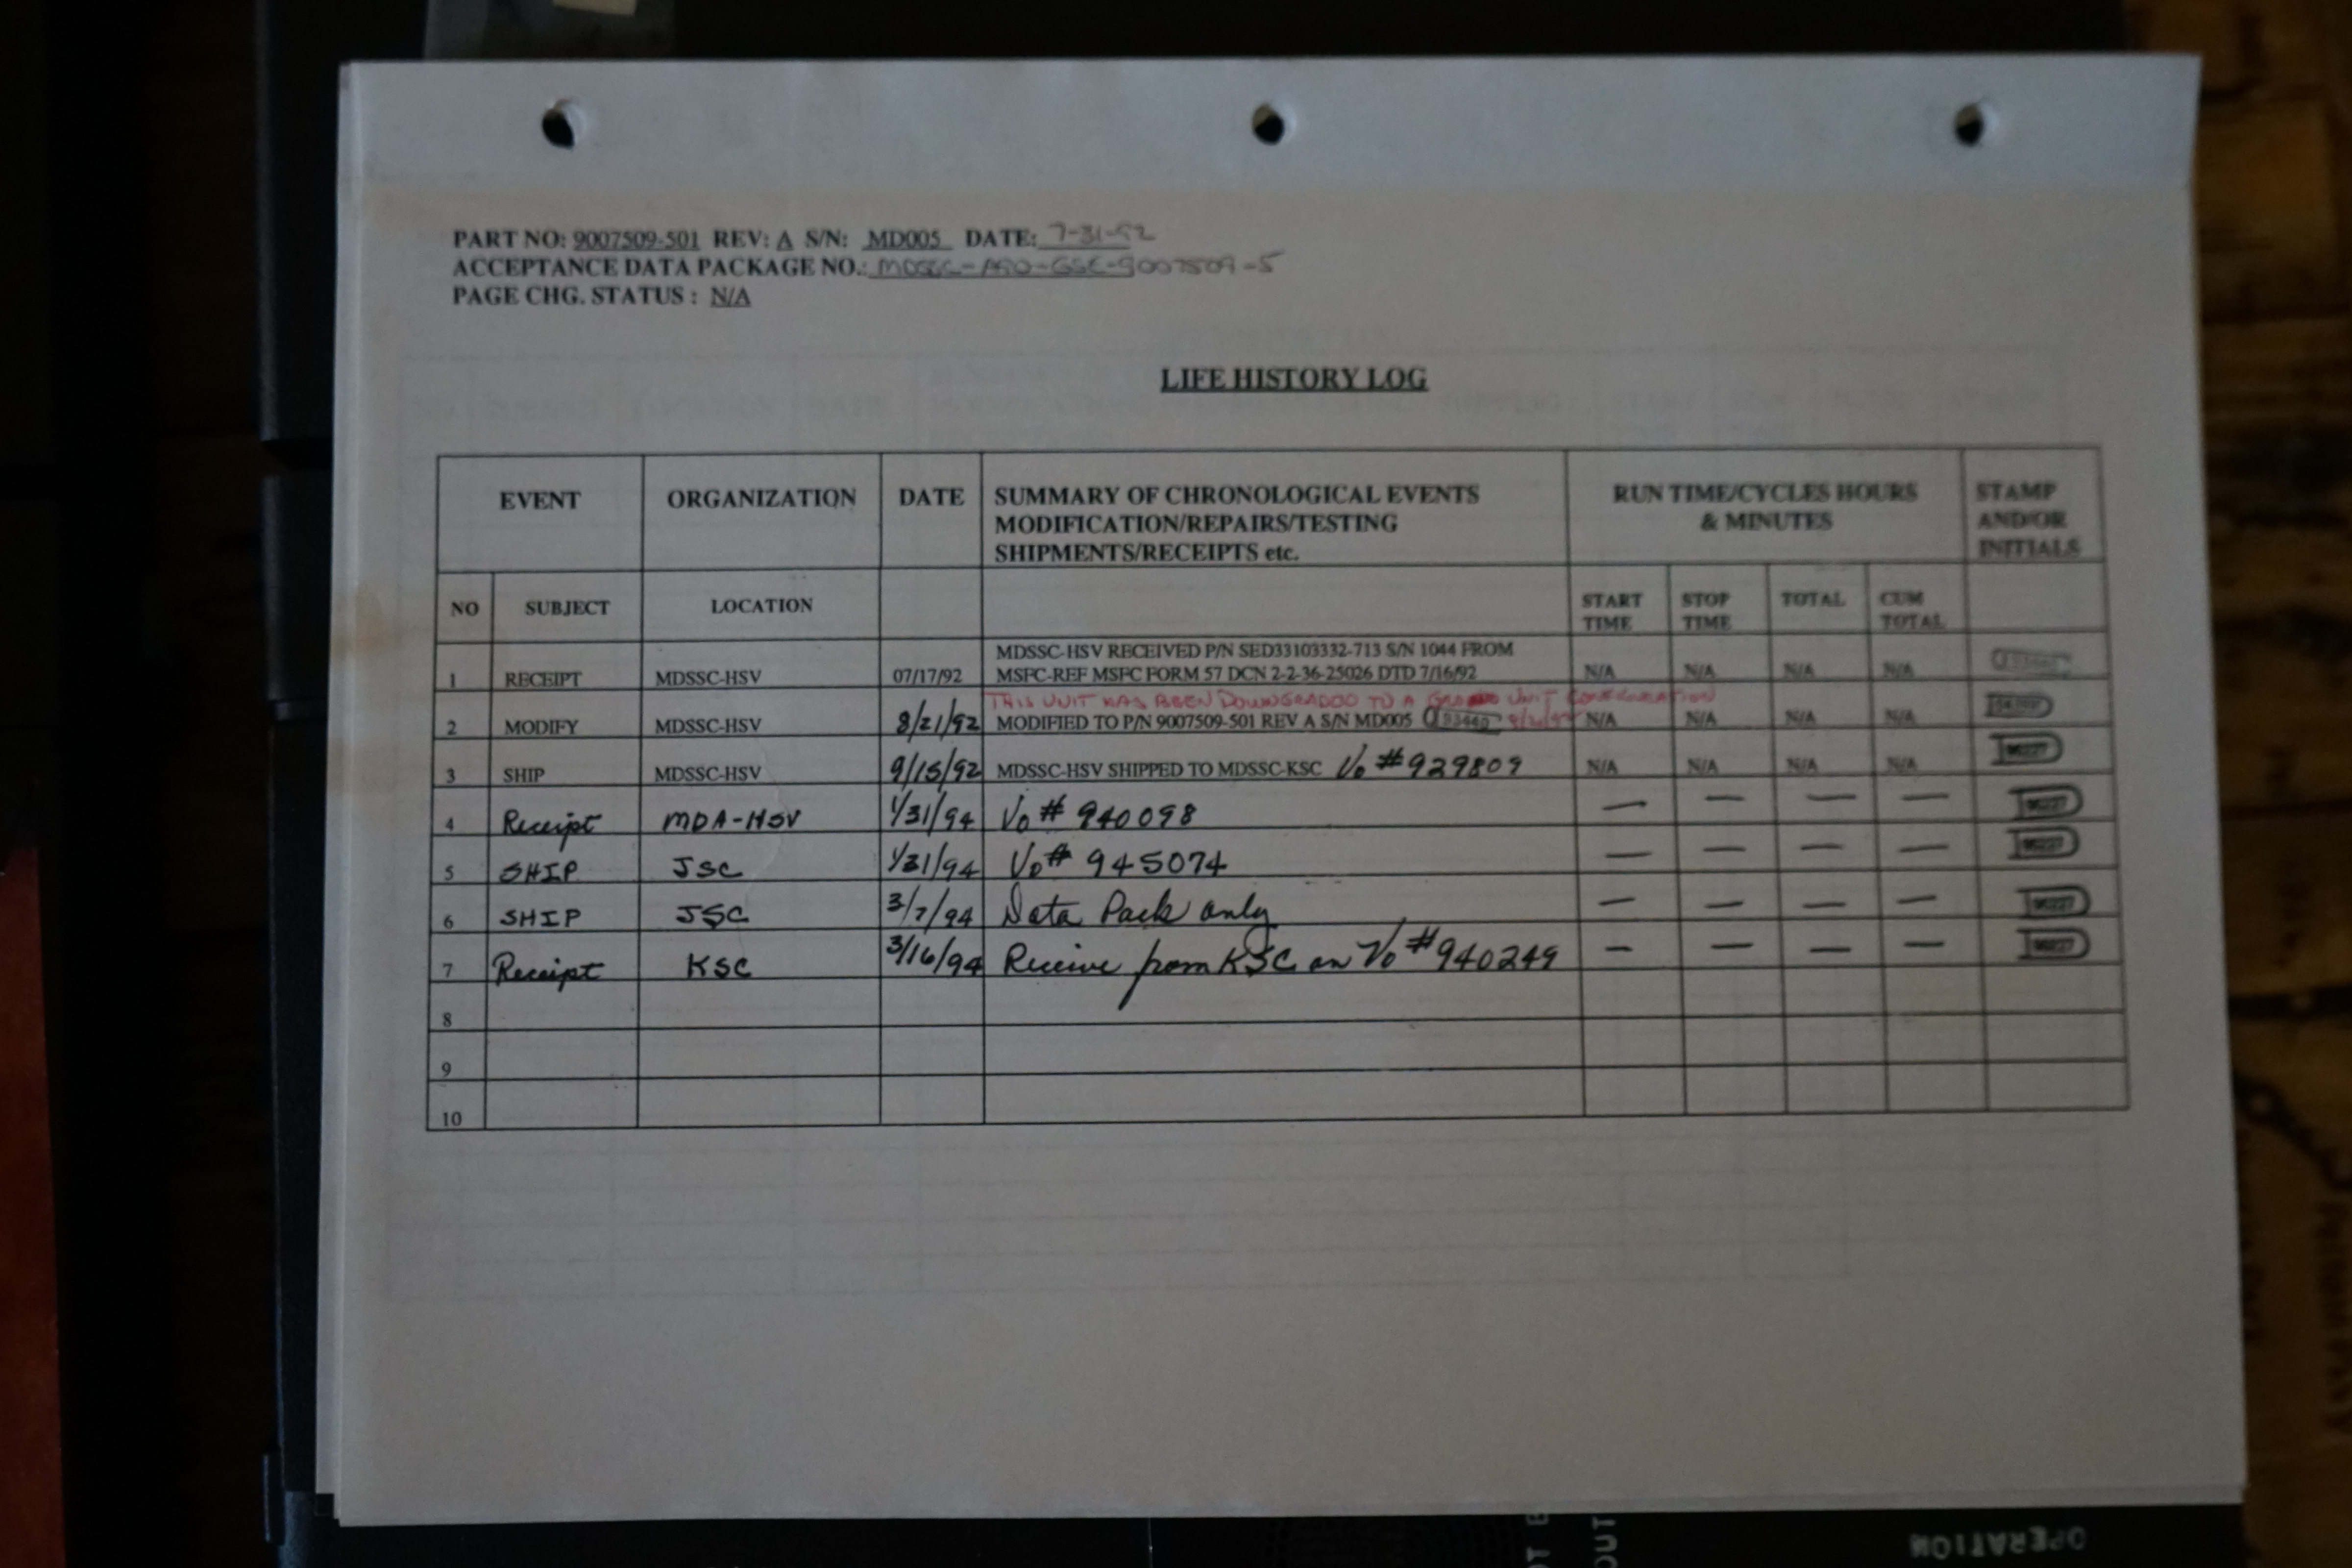 PART NO: 9007509-501 REV: A S/N: MD005 DATE: 7-31-92
ACCEPTANCE DATA PACKAGE NO.: MDSSC-ASO-GSC-9007509-5
PAGE CHG. STATUS : N/A
LIFE HISTORY LOG
EVENT ORGANIZATION DATE SUMMARY OF CHRONOLOGICAL EVENTS RUN TIME/CYCLES HOURS STAMP
MODIFICATION/REPAIRS/TESTING & MINUTES AND/OR
SHIPMENTS/RECEIPTS etc. INITIALS
NO SUBJECT LOCATION START STOP TOTAL CUM
TIME TIME TOTAL
MDSSC-HSV RECEIVED P/N SED33103332-713 S/N 1044 FROM
1 RECEIPT MDSSC-HSV 07/17/92 MSFC-REF MSFC FORM 57 DCN 2-2-36-25026 DTD 7/16/92 N/A N/A N/A N/A
THIS UNIT HAS BEEN DOWNGRADED TO A UNIT CONFIGURATION
2 MODIFY MDSSC-HSV 8/21/92 MODIFIED TO P/N 9007509-501 REV A S/N MD005 N/A N/A N/A N/A
3 SHIP MDSSC-HSV 9/15/92 MDSSC-HSV SHIPPED TO MDSSC-KSC Vo #929809 N/A N/A N/A N/A
4 Receipt MDA-HSV 1/31/94 Vo # 940098 — — — —
5 SHIP JSC 1/31/94 Vo# 945074 — — — —
6 SHIP JSC 3/7/94 Data Pack only — — — —
7 Receipt KSC 3/16/94 Receive from KSC on Vo #940249 — — — —
8
9
10
OPERATION